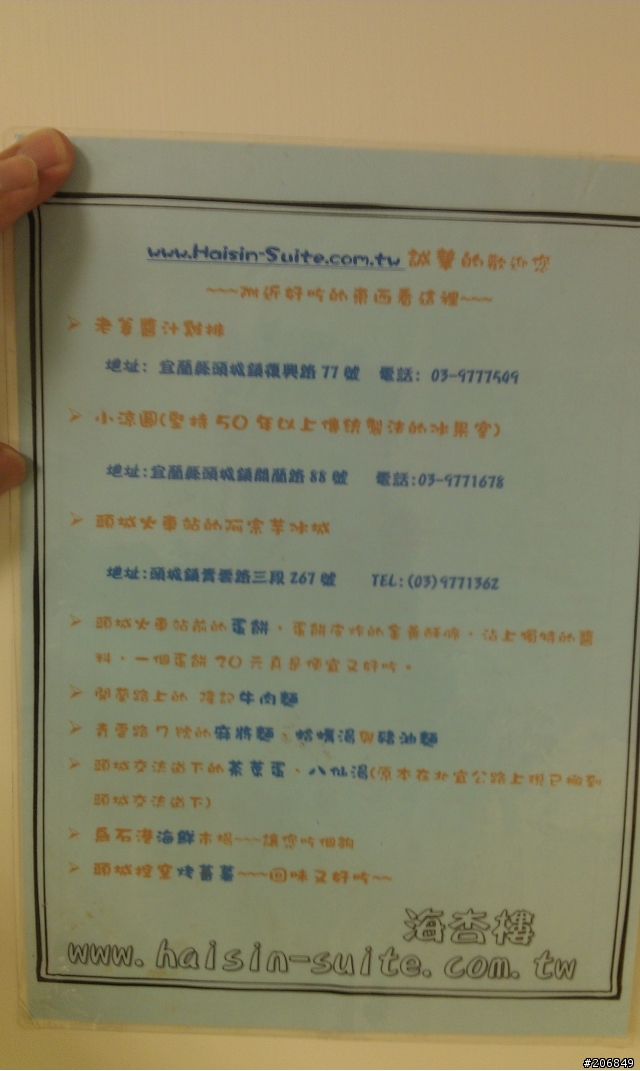 www.Haisin-Suite.com.tw 誠摯的歡迎您
~~~附近好吃的東西看這裡~~~
➢ 老爹醬汁雞排
地址: 宜蘭縣頭城鎮復興路 77 號 電話: 03-9777549
➢ 小涼園(堅持 50 年以上傳統製法的冰果室)
地址:宜蘭縣頭城鎮開蘭路 88 號 電話:03-9771678
➢ 頭城火車站的阿宗芋冰城
地址:頭城鎮青雲路三段 267 號 TEL:(03)9771362
➢ 頭城火車站前的蛋餅,蛋餅皮炸的金黃酥脆,沾上獨特的醬
料,一個蛋餅 20 元真是便宜又好吃。
➢ 開蘭路上的 牛肉麵
➢ 青雲路 7 號的麻將麵、蛤蠣湯與豬油麵
➢ 頭城交流道下的茶葉蛋、八仙湯(原本在北宜公路上現已搬到
頭城交流道下)
➢ 烏石港海鮮市場~~~讓您吃個夠
➢ 頭城控窯烤蕃薯~~~回味又好吃~~
海杏樓
www.haisin-suite.com.tw
#206849